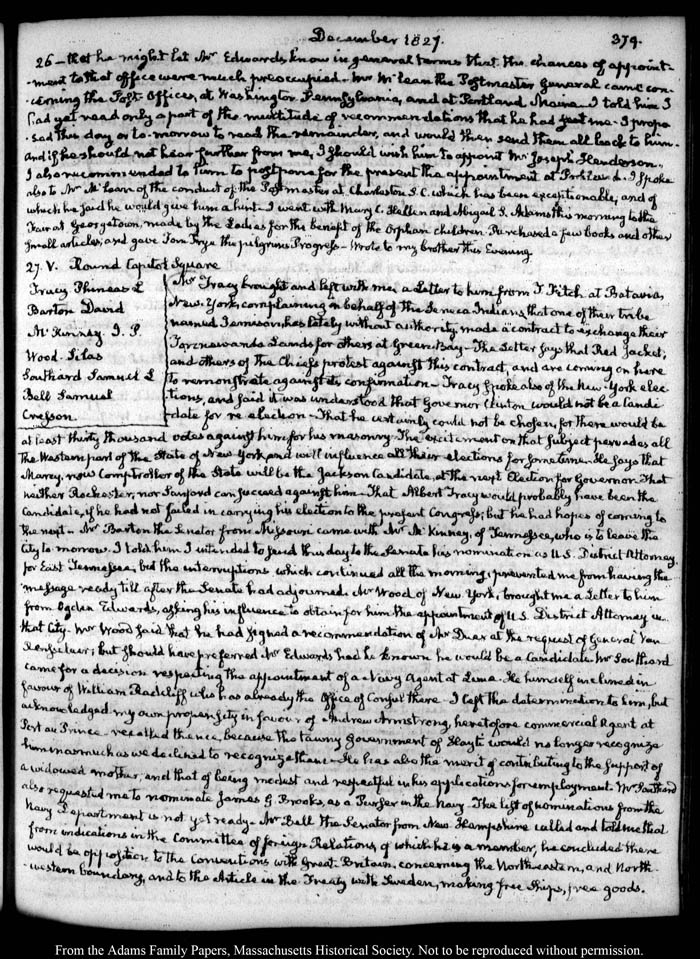 December 1827.
379.
26 — that he might let Mr. Edwards know in general terms that his chances of appoint-
-ment to that office were much preoccupied — Mr. McLean the Postmaster General came con-
-cerning the Post-Offices, at Washington Pennsylvania, and at Portland Maine — I told him I
had yet read only a part of the multitude of recommendations that he had sent me. I propo-
-sed this day or to-morrow to read the remainder, and would then send them all back to him.
And if he should not hear further from me, I should wish him to appoint Mr. Joseph Henderson.
I also recommended to him to postpone for the present the appointment at Portland. I spoke
also to Mr. McLean of the conduct of the Postmaster at Charleston S.C. which has been exceptionable, and of
which he said he would give him a hint — I went with Mary C. Hellen and Abigail S. Adams this morning to the
Fair at Georgetown, made by the Ladies for the benefit of the Orphan children. Purchased a few books and other
small articles, and gave Tom Frye the pilgrims Progress — Wrote to my brother this Evening.
27. V. Round Capitol Square
Tracy Phineas L
Barton David
McKinney. J. P.
Wood. Silas
Southard Samuel L
Bell Samuel
Cresson
Mr. Tracy brought and left with me, a Letter to him from T Fitch at Batavia,
New-York, complaining in behalf of the Seneca Indians, that one of their tribe
named Jemison, has lately without authority, made a contract to exchange their
Tonnewanda Lands for others at Green-Bay — The Letter says that Red Jacket,
and others of the Chiefs protest against this contract, and are coming on here
to remonstrate against its confirmation — Tracy spoke also of the New-York elec-
-tions, and said it was understood that Governor Clinton would not be a Candi-
-date for re-election — That he certainly could not be chosen, for there would be
at least thirty thousand votes against him for his masonry. The excitement on that subject pervades all
the Western part of the State of New York and will influence all their elections for some time. He says that
Marcy, now Comptroller of the State will be the Jackson Candidate, at the next Election for Governor. That
neither Rochester, nor Sanford can succeed against him — That Albert Tracy would probably have been the
Candidate, if he had not failed in carrying his election to the present Congress; but he had hopes of coming to
the next — Mr. Barton the Senator from Missouri came with Mr. McKinney, of Tennessee, who is to leave the
City to-morrow. I told them I intended to send this day to the Senate his nomination as U.S. District Attorney
for East Tennessee, but the interruptions which continued all the morning, prevented me from having the
message ready till after the Senate had adjourned. Mr. Wood of New York, brought me a Letter to him
from Ogden Edwards, asking his influence to obtain for him the appointment of U.S. District Attorney in
that City. Mr. Wood said that he had signed a recommendation of Mr. Duer at the request of General Van
Rensselaer; but should have preferred Mr. Edwards had he known he would be a Candidate. Mr. Southard
came for a decision respecting the appointment of a Navy Agent at Lima. He himself inclined in
favour of William Radcliff who has already the Office of Consul there — I left the determination to him, but
acknowledged my own propensity in favour of Andrew Armstrong, heretofore commercial Agent at
Port au Prince — recalled thence, because the tawny Government of Hayti would no longer recognize
him inasmuch as we declined to recognize them — He has also the merit of contributing to the support of
a widowed mother, and that of being modest and respectful in his applications for employment. Mr. Southard
also requested me to nominate James G. Brooks, as a Purser in the Navy. The list of nominations from the
Navy Department is not yet ready — Mr. Bell the Senator from New Hampshire called and told me that
from indications in the Committee of foreign Relations, of which he is a member, he concluded there
would be opposition to the Conventions with Great-Britain, concerning the North-eastern, and North-
-western boundary, and to the Article in the Treaty with Sweden, making free Ships, free goods.
From the Adams Family Papers, Massachusetts Historical Society. Not to be reproduced without permission.